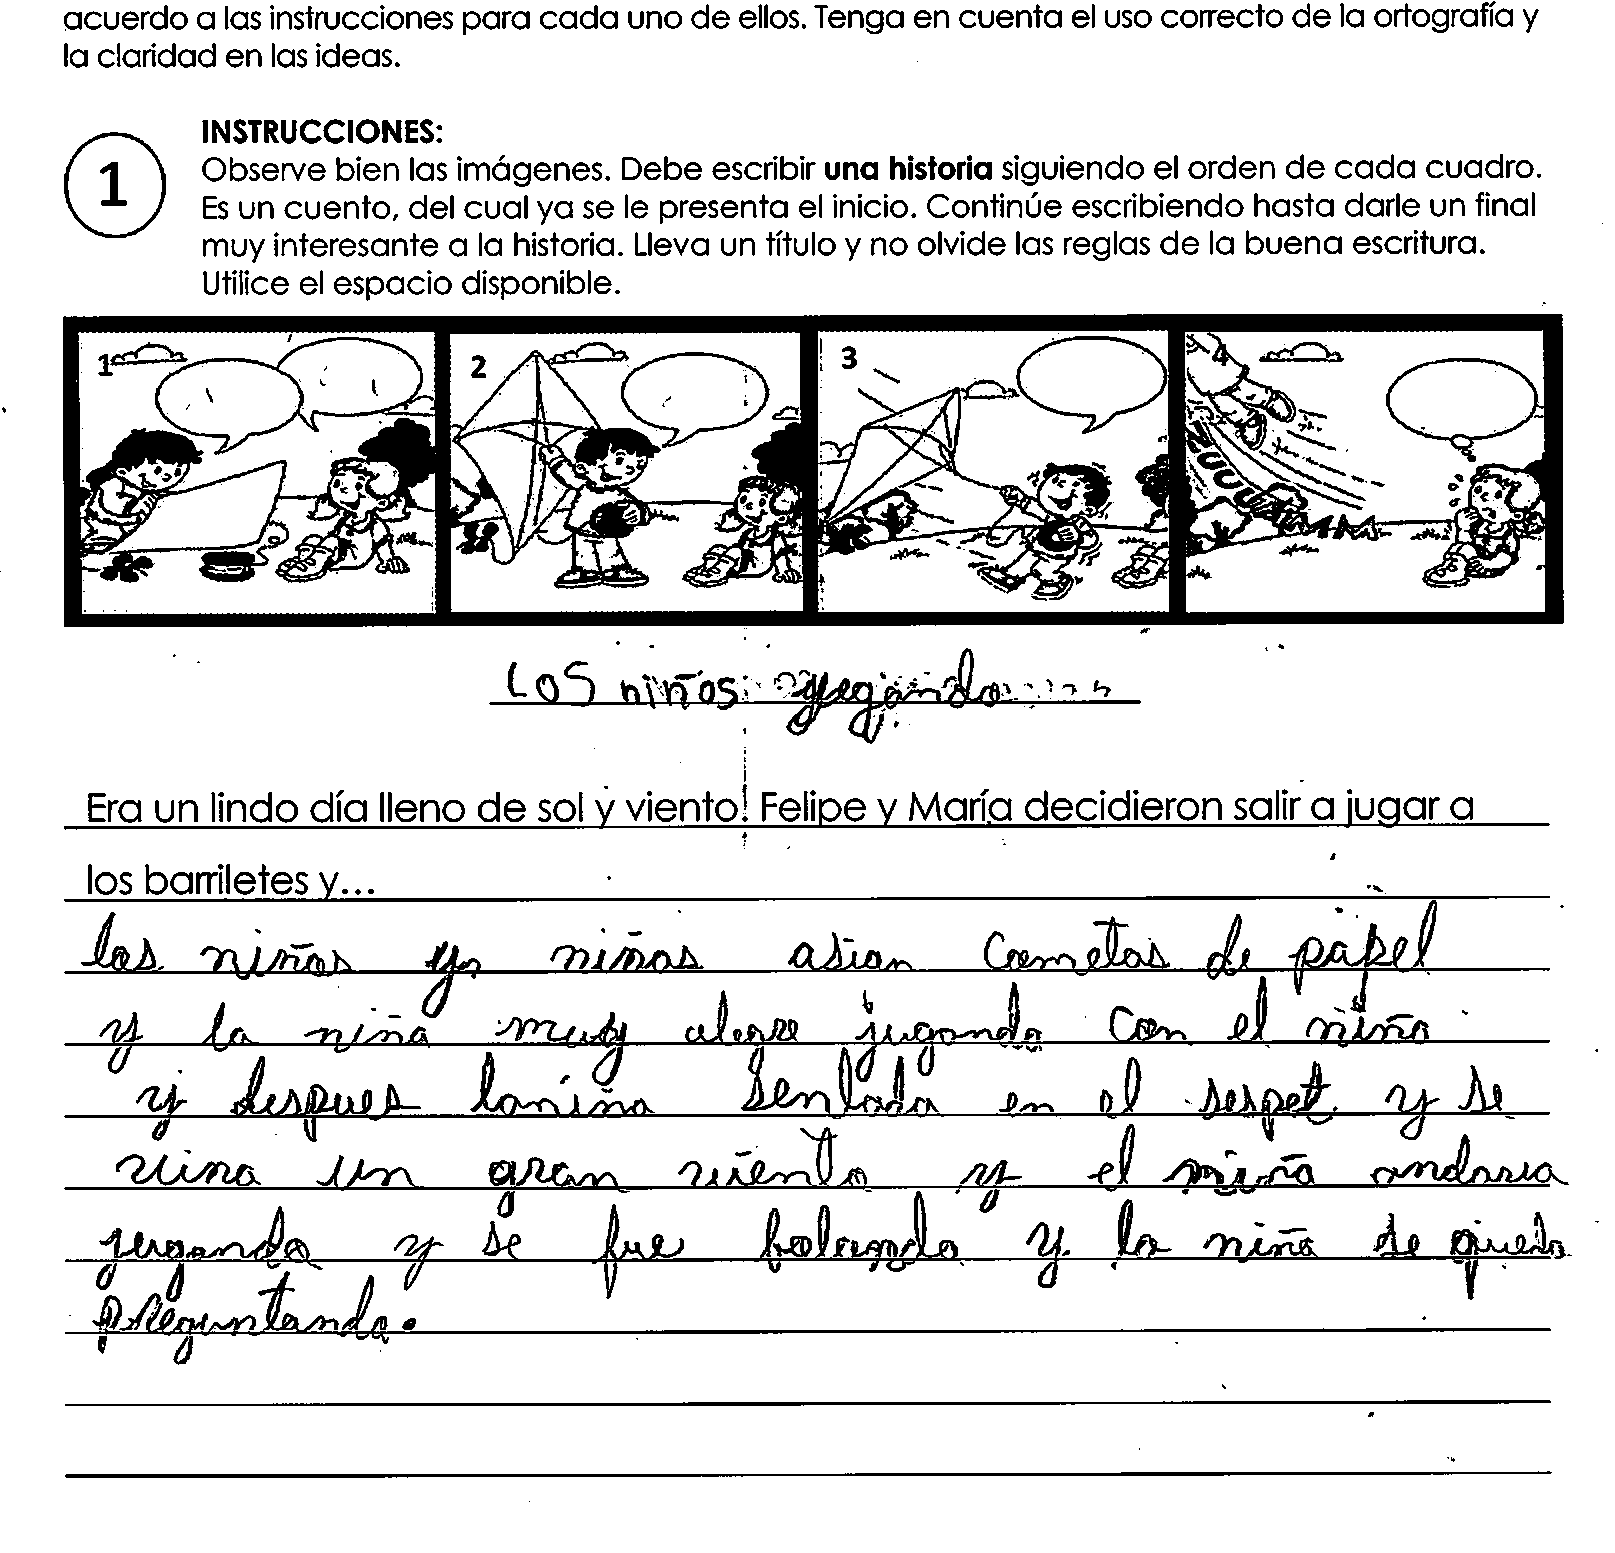 acuerdo a las instrucciones para cada uno de ellos. Tenga en cuenta el uso correcto de la ortografía y
la claridad en las ideas.
1
INSTRUCCIONES:
Observe bien las imágenes. Debe escribir una historia siguiendo el orden de cada cuadro.
Es un cuento, del cual ya se le presenta el inicio. Continúe escribiendo hasta darle un final
muy interesante a la historia. Lleva un título y no olvide las reglas de la buena escritura.
Utilice el espacio disponible.
1 2 3 4
Los niños
Era un lindo día lleno de sol y viento! Felipe y María decidieron salir a jugar a
los barriletes y...
los niños y niñas asian Cometas de papel
y la niña muy alegre jugando con el niño
y despues laniña Sentada en el sespet y se
vino un gran viento y el niño andavia
jugando y se fue bolando y la niña se quedo
preguntando.